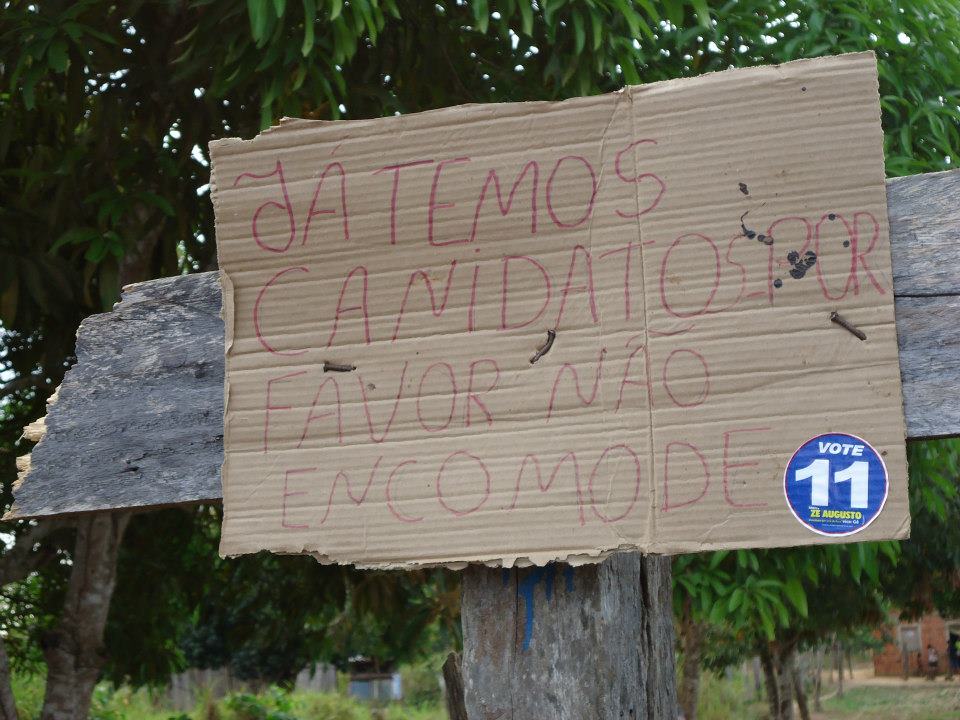 JÁ TEMOS
CANIDATOS POR
FAVOR NÃO
ENCOMODE
VOTE
11
ZE AUGUSTO